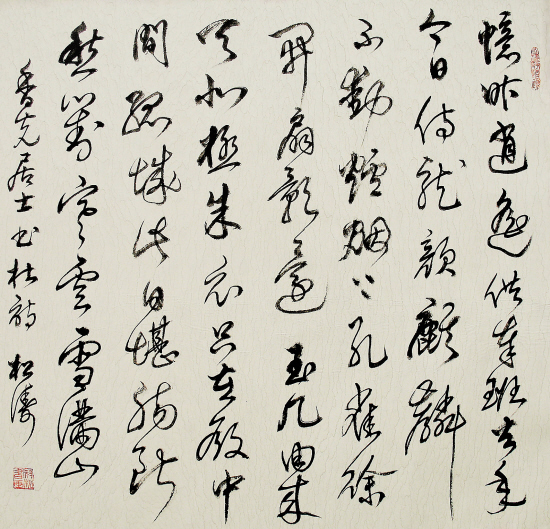 憶昨逍遙供奉班去年
今日侍龍顏麒麟
不動爐烟上孔雀徐
開扇影還玉几由來
天北極朱衣只在殿中
間孤城此日堪腸斷
愁對寒雲雪滿山
香光居士書杜詩 松濤